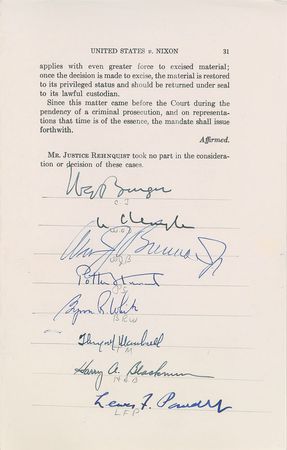 UNITED STATES v. NIXON 31
applies with even greater force to excised material;
once the decision is made to excise, the material is restored
to its privileged status and should be returned under seal
to its lawful custodian.
Since this matter came before the Court during the
pendency of a criminal prosecution, and on representa-
tions that time is of the essence, the mandate shall issue
forthwith.
Affirmed.
MR. JUSTICE REHNQUIST took no part in the considera-
tion or decision of these cases.
Burger
CJ
Wm J Brennan Jr
WJB
Potter Stewart
PS
Byron R. White
BRW
Thurgood Marshall
TM
Harry A. Blackmun
HAB
Lewis F. Powell Jr
LFP